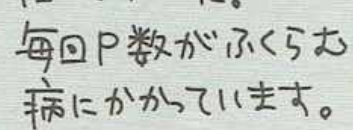 毎回P数がふくらむ
病にかかっています。